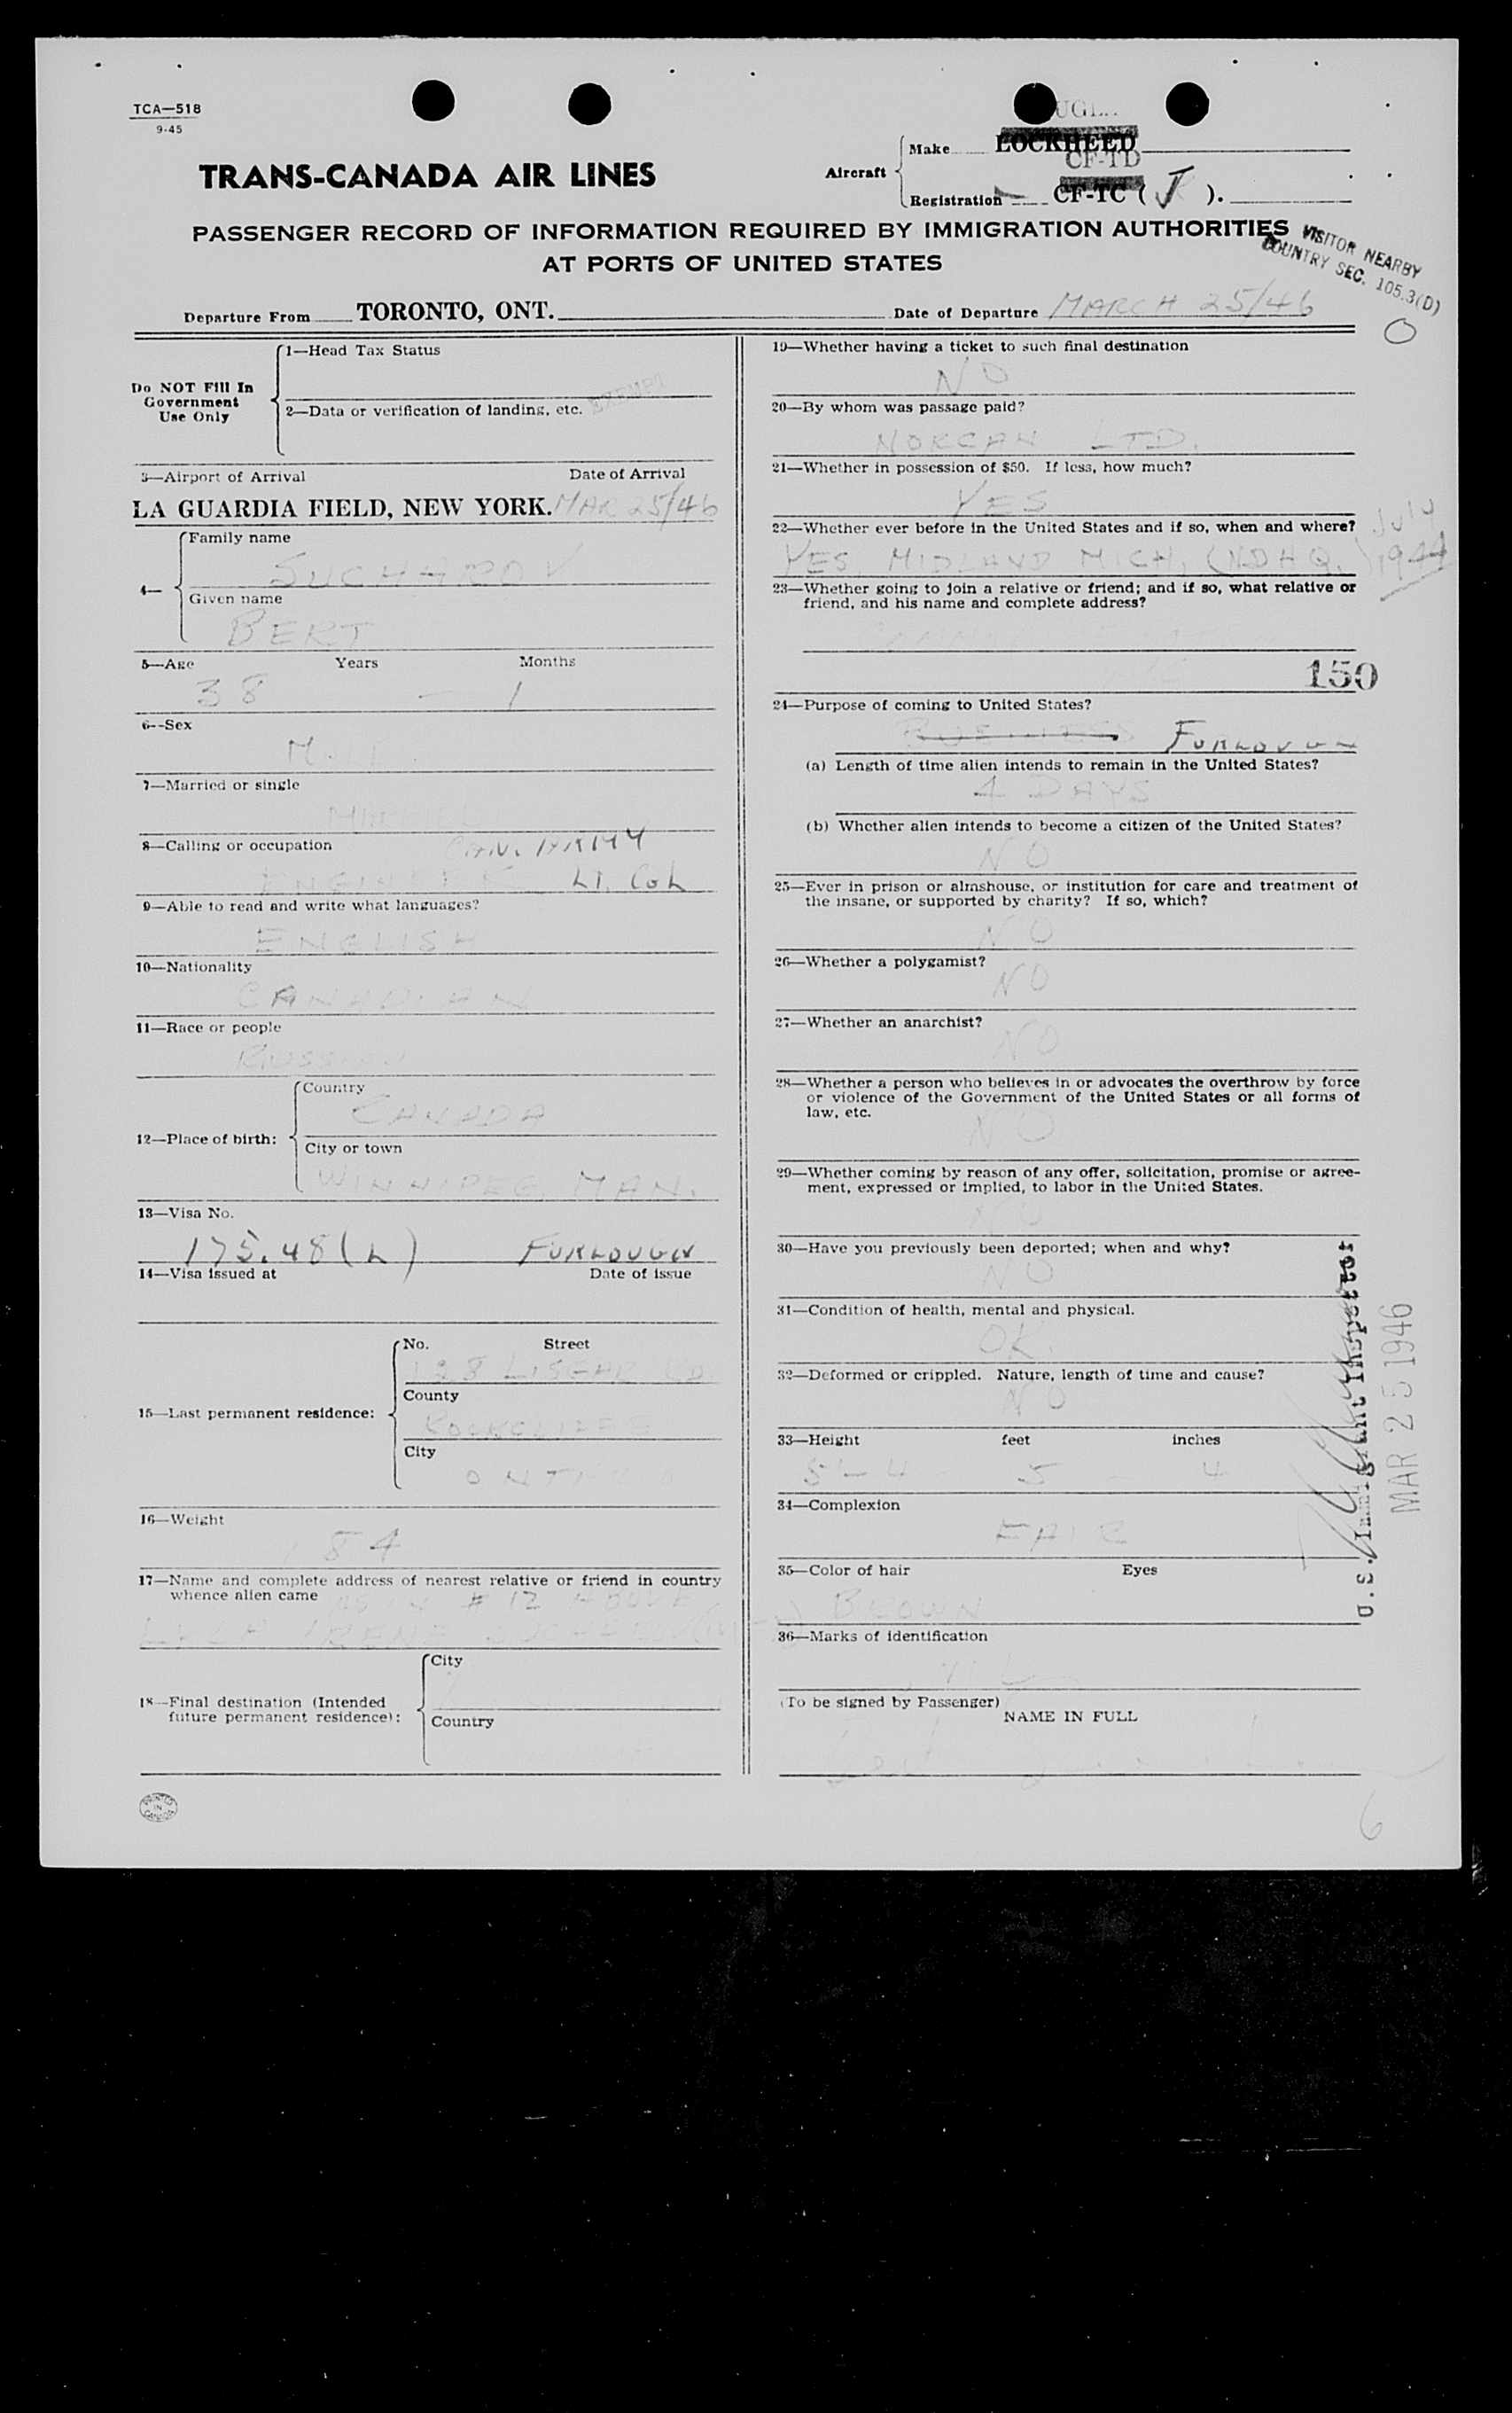 TCA—518
9-45
TRANS-CANADA AIR LINES
Aircraft
Make LOCKHEED
CF-TD
Registration CF-TC ( J ).
PASSENGER RECORD OF INFORMATION REQUIRED BY IMMIGRATION AUTHORITIES
AT PORTS OF UNITED STATES
VISITOR NEARBY
COUNTRY SEC. 105.3(D)
Departure From TORONTO, ONT.
Date of Departure MARCH 25/46
O
Do NOT Fill In
Government
Use Only
1—Head Tax Status
EXEMPT
2—Data or verification of landing, etc.
3—Airport of Arrival Date of Arrival
LA GUARDIA FIELD, NEW YORK. MAR 25/46
4—
Family name
SUCHAROV
Given name
BERT
5—Age Years Months
38 — 1
6—Sex
M
7—Married or single
8—Calling or occupation CAN. ARMY
ENGINEER LT. COL
9—Able to read and write what languages?
ENGLISH
10—Nationality
CANADIAN
11—Race or people
RUSSIAN
12—Place of birth:
Country
CANADA
City or town
WINNIPEG MAN.
13—Visa No.
175.48(L) FURLOUGH
14—Visa issued at Date of issue
15—Last permanent residence:
No. Street
128 LISGAR RD
County
ROCKCLIFFE
City
ONTARIO
16—Weight
184
17—Name and complete address of nearest relative or friend in country
whence alien came
# 12 ABOVE
IRENE
18—Final destination (Intended
future permanent residence):
City
Country
PRINTED
IN
CANADA
19—Whether having a ticket to such final destination
NO
20—By whom was passage paid?
NORCAN LTD.
21—Whether in possession of $50. If less, how much?
YES
22—Whether ever before in the United States and if so, when and where?
YES MIDLAND MICH. (NDHQ.) July
1944
23—Whether going to join a relative or friend; and if so, what relative or
friend, and his name and complete address?
150
24—Purpose of coming to United States?
BUSINESS FURLOUGH
(a) Length of time alien intends to remain in the United States?
4 DAYS
(b) Whether alien intends to become a citizen of the United States?
NO
25—Ever in prison or almshouse, or institution for care and treatment of
the insane, or supported by charity? If so, which?
NO
26—Whether a polygamist?
NO
27—Whether an anarchist?
NO
28—Whether a person who believes in or advocates the overthrow by force
or violence of the Government of the United States or all forms of
law, etc.
NO
29—Whether coming by reason of any offer, solicitation, promise or agree-
ment, expressed or implied, to labor in the United States.
NO
30—Have you previously been deported; when and why?
NO
31—Condition of health, mental and physical.
OK.
32—Deformed or crippled. Nature, length of time and cause?
NO
33—Height feet inches
5'-4 5 — 4
34—Complexion
FAIR
35—Color of hair Eyes
BROWN
36—Marks of identification
(To be signed by Passenger)
NAME IN FULL
U.S. Immigrant Inspector
MAR 25 1946
6